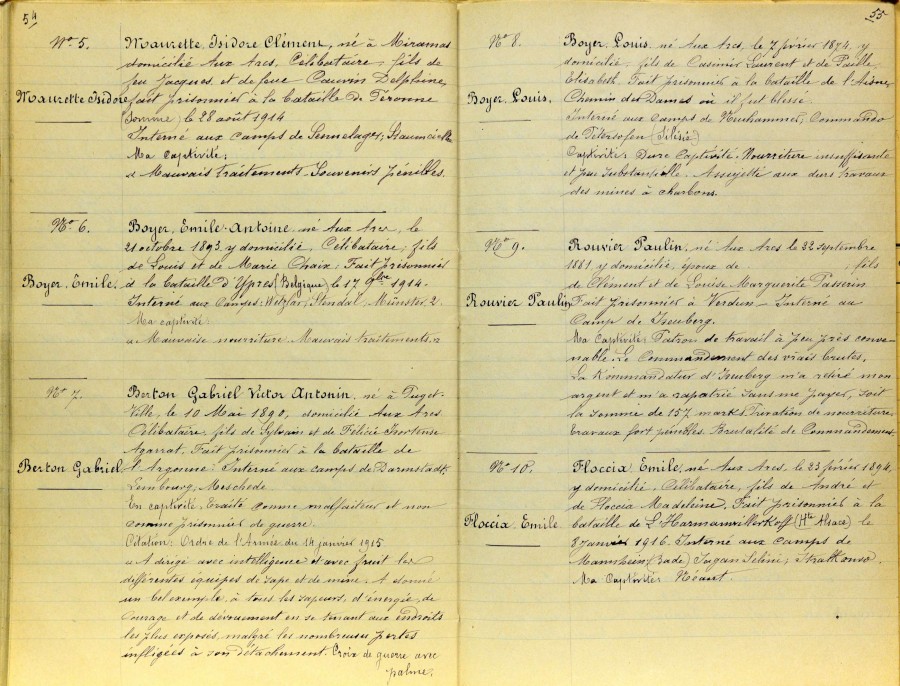 54
Nº 5.
Maurette Isidore
Maurette Isidore Clément, né à Miramas
domicilié Aux Arcs, Célibataire, fils de
feu Jacques et de feue Cauvin Delphine,
fait prisonnier à la bataille de Péronne
(Somme) le 28 août 1914
Interné aux camps de Sennelager,
Ma Captivité;
« Mauvais traitements. Souvenirs pénibles.
Nº 6.
Boyer, Émile,
Boyer, Emile-Antoine, né Aux Arcs, le
21 octobre 1893, y domicilié, Célibataire, fils
de Louis et de Marie Chaix; Fait prisonnier
à la bataille d'Ypres (Belgique) le 17 9bre 1914-
Interné aux Camps: Wetzlar, Stendal, Münster 2
Ma captivité:
« Mauvaise nourriture. Mauvais traitements. »
Nº 7.
Berton Gabriel
Berton Gabriel Victor Antonin, né à Puget-
Ville, le 10 Mai 1890, domicilié Aux Arcs
Célibataire, fils de Sylvain et de Félicie Hortense
Agarrat, Fait prisonnier à la bataille de
l'Argonne; Interné aux camps de Darmstadt,
Limbourg, Meschede
En captivité, Traité comme malfaiteur et non
comme prisonnier de guerre.
Citation: Ordre de l'Armée du 14 janvier 1915
« A dirigé avec intelligence et avec fruit les
différentes équipes de sape et de mine. A donné
un bel exemple, à tous les sapeurs, d'énergie, de
courage et de dévouement en se tenant aux endroits
les plus exposés, malgré les nombreuses pertes
infligées à son détachement. Croix de guerre avec
palme.
55
Nº 8.
Boyer, Louis,
Boyer, Louis, né Aux Arcs, le 7 février 1874, y
domicilié, fils de Casimir Laurent et de
Elisabeth. Fait prisonnier à la bataille de l'Aisne,
Chemin des Dames où il fut blessé.
Interné aux Camps de Neuhammer, Commando
de Petersofen (Silésie)
Captivité: Dure Captivité. Nourriture insuffisante
et peu substantielle. Assujetti aux durs travaux
des mines à charbons.
Nº 9.
Rouvier Paulin,
Rouvier Paulin, né Aux Arcs le 22 septembre
1881, y domicilié, époux de , fils
de Clément et de Louise Marguerite Passerin
Fait prisonnier à Verdun - Interné au
Camp de Isenberg.
Ma Captivité: Patron de travail à peu près conve-
nable. Le Commandement des vrais brutes,
La Kommandatur d'Isenberg m'a retiré mon
argent et m'a rapatrié sans me payer, soit
la somme de 157 marks. Privation de nourriture,
travaux fort pénibles. Brutalité de Commandement.
Nº 10.
Floccia, Emile
Floccia, Emile, né Aux Arcs, le 23 février 1894,
y domicilié. Célibataire, fils de André et
de Floccia Madeleine. Fait prisonnier à la
bataille de L'Harmannwillerkoff (Hte Alsace) le
8 janvier 1916. Interné aux camps de
Mannheim (Bade) Sagan Silésie;
Ma Captivité: Néant.